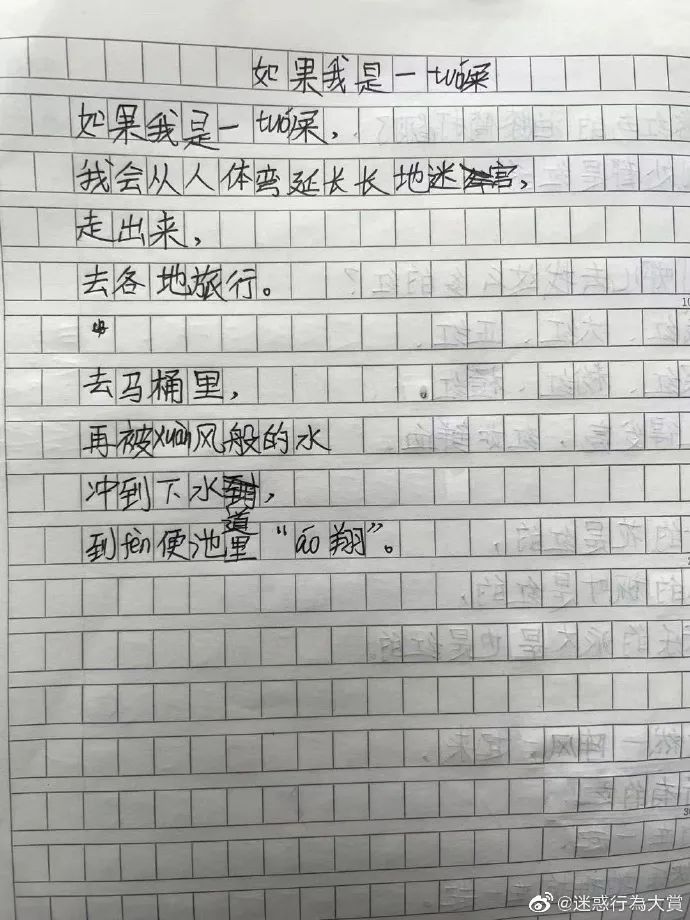 如果我是一tuó屎
如果我是一tuó屎，
我会从人体弯延长长地迷宫，
走出来，
去各地旅行。
去马桶里，
再被xuàn风般的水
冲到下水道，
到fèn便池里“áo翔”。
@迷惑行為大賞